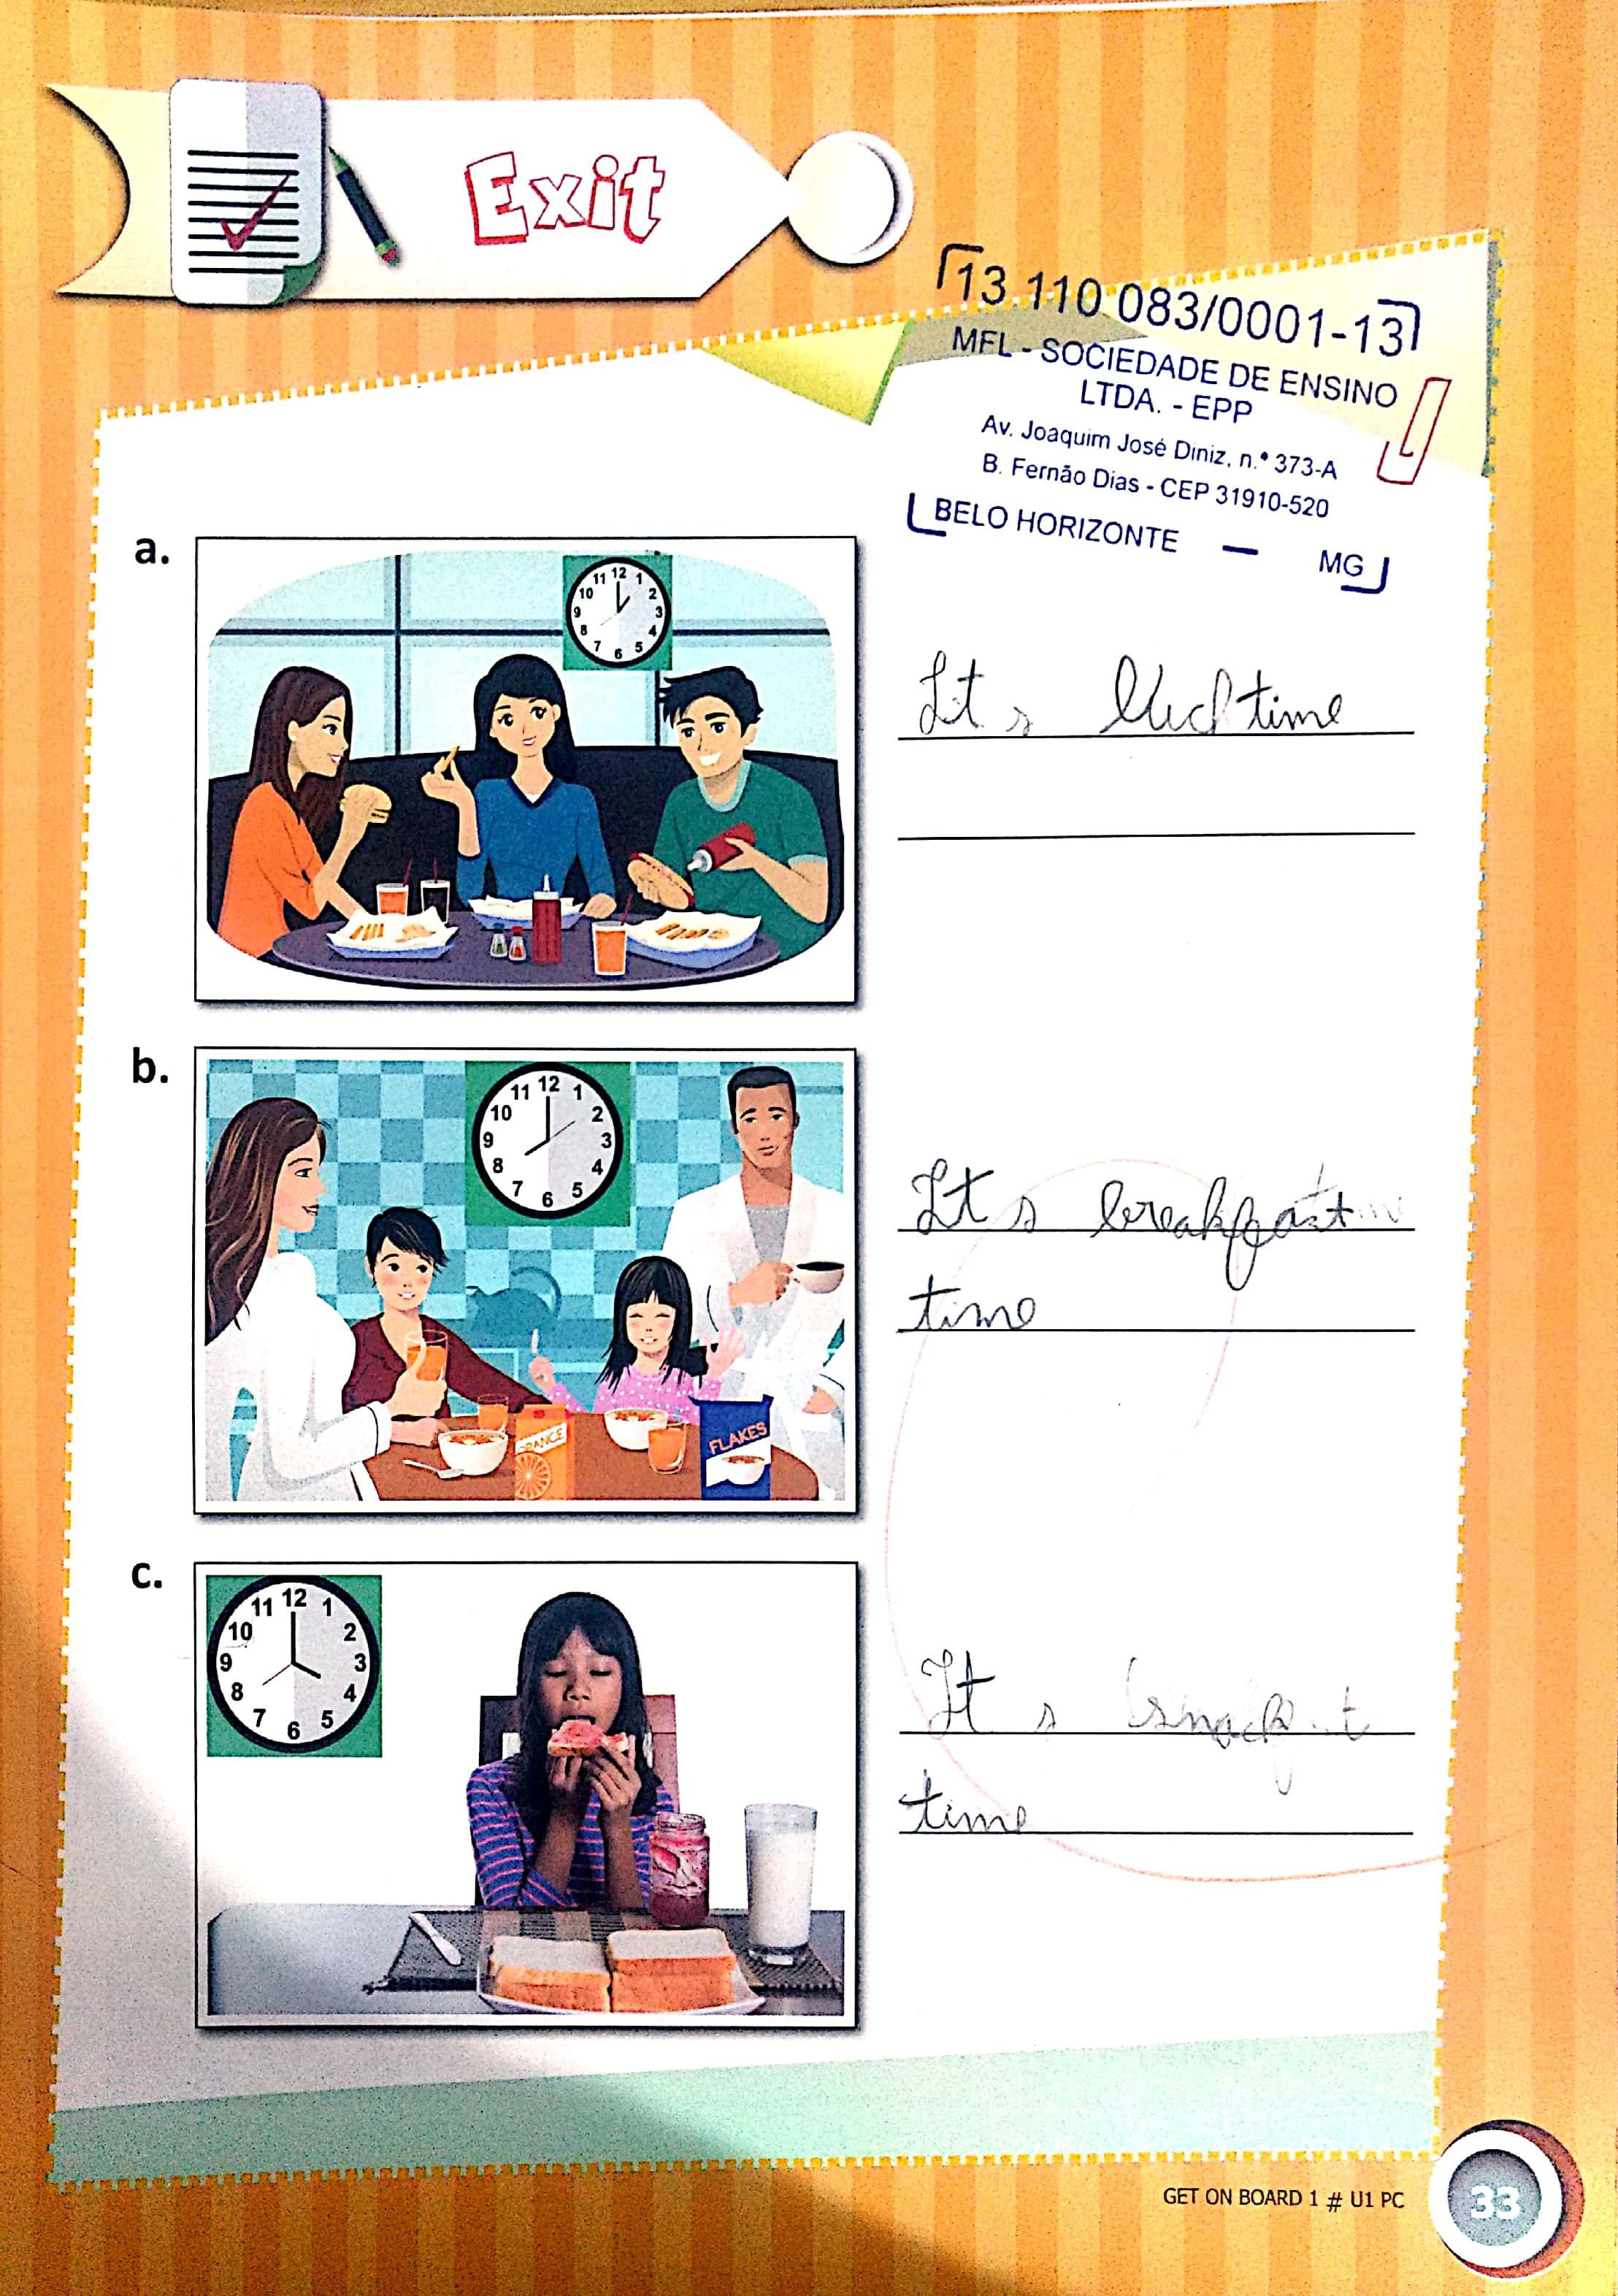 Exit
13.110.083/0001-13
MFL - SOCIEDADE DE ENSINO
LTDA. - EPP
Av. Joaquim José Diniz, n.º 373-A
B. Fernão Dias - CEP 31910-520
BELO HORIZONTE — MG
a.
11 12 1
10 2
9 3
8 4
7 6 5
It s time
b.
11 12 1
10 2
9 3
8 4
7 6 5
ORANGE
FLAKES
It s breakfast
time
c.
11 12 1
10 2
9 3
8 4
7 6 5
It s snack t
time
GET ON BOARD 1 # U1 PC
33